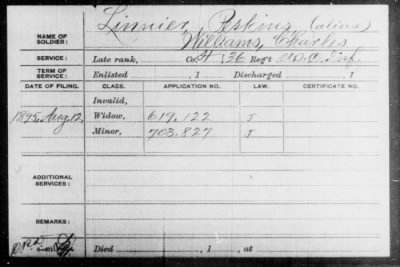 Linnier, Perkins, (alias)
NAME OF SOLDIER: Williams, Charles
SERVICE: Late rank, Co. A, 136 Reg't U.S.C. Inf.
TERM OF SERVICE: Enlisted , 1 Discharged , 1
DATE OF FILING. CLASS. APPLICATION NO. LAW. CERTIFICATE NO.
Invalid,
1895, Aug. 12, Widow, 619.122 J
Minor, 703.827 J
ADDITIONAL SERVICES:
REMARKS:
Died , 1 , at